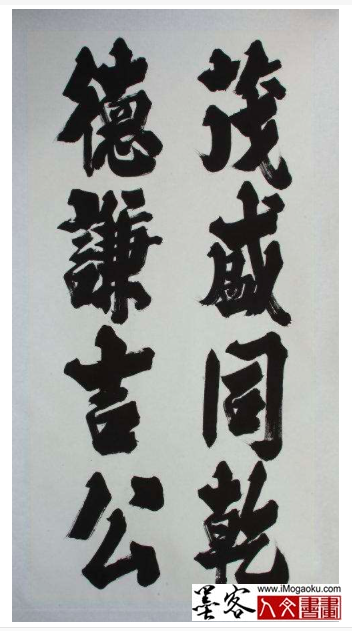 茂盛同乾
德謙吉公
www.iMogaoku.com
墨客
人文書畫